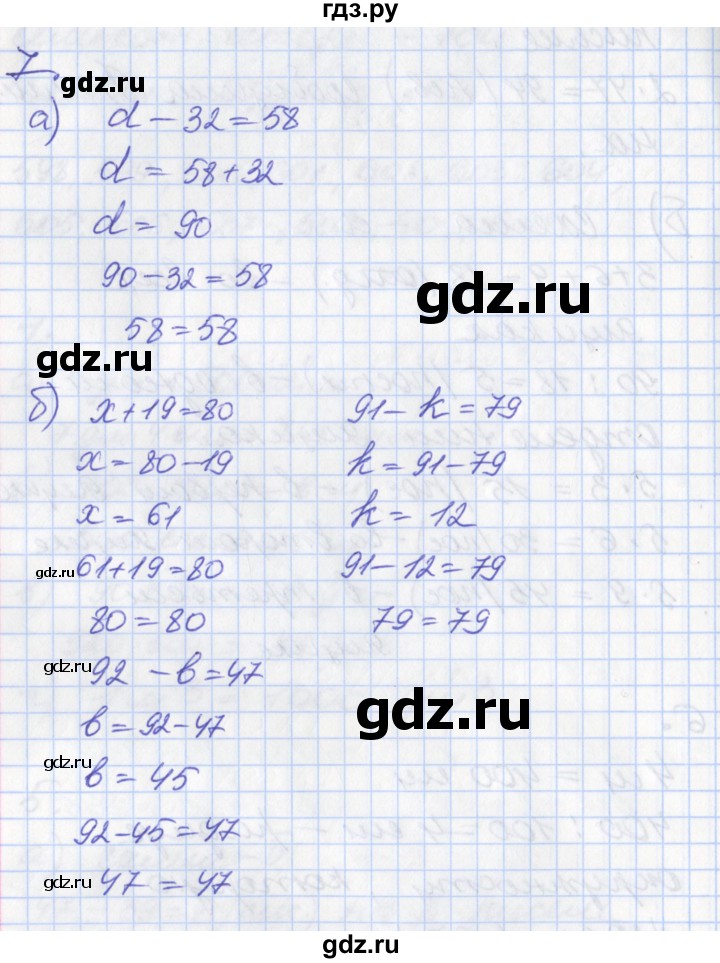 гдз.ру
7.
gdz.ru
а) d − 32 = 58
d = 58 + 32
d = 90
90 − 32 = 58
gdz.ru
58 = 58
gdz.ru
б) x + 19 = 80
x = 80 − 19
x = 61
gdz.ru
61 + 19 = 80
80 = 80
91 − k = 79
k = 91 − 79
k = 12
91 − 12 = 79
79 = 79
gdz.ru
92 − в = 47
в = 92 − 47
gdz.ru
gdz.ru
в = 45
92 − 45 = 47
gdz.ru
47 = 47
gdz.ru